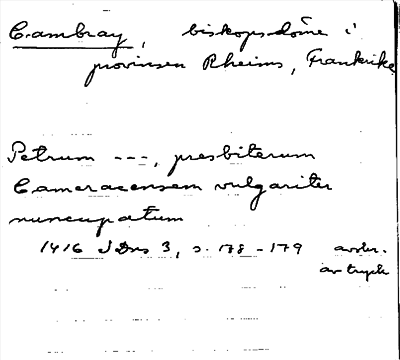 Cambray, biskopsdöme i
provinsen Rheims, Frankrike
Petrum ---, presbiterum
Cameracensem vulgariter
nuncupatum
1416 SDns 3, s. 178-179 avskr.
av tryck